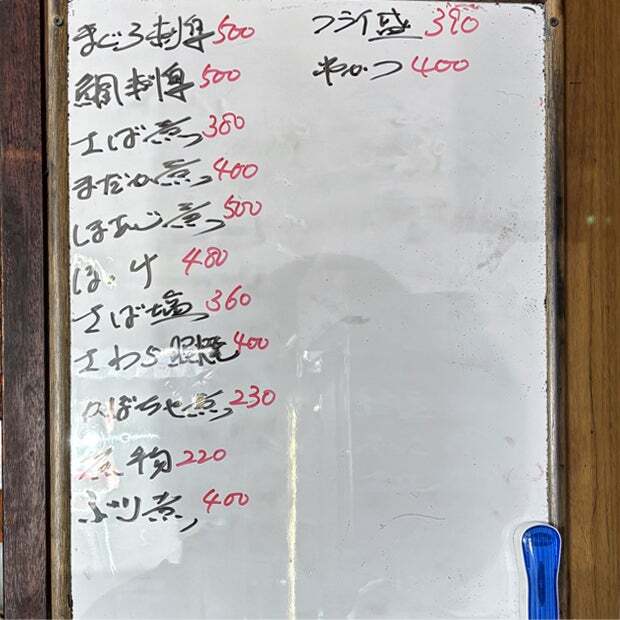 まぐろ刺身 500
鯛刺身 500
さば煮 380
まだか煮 400
しまあじ煮 500
ほっけ 480
さば塩 360
さわら照焼 400
かぼちゃ煮 230
煮物 220
ぶり煮 400
フライ盛 390
串かつ 400